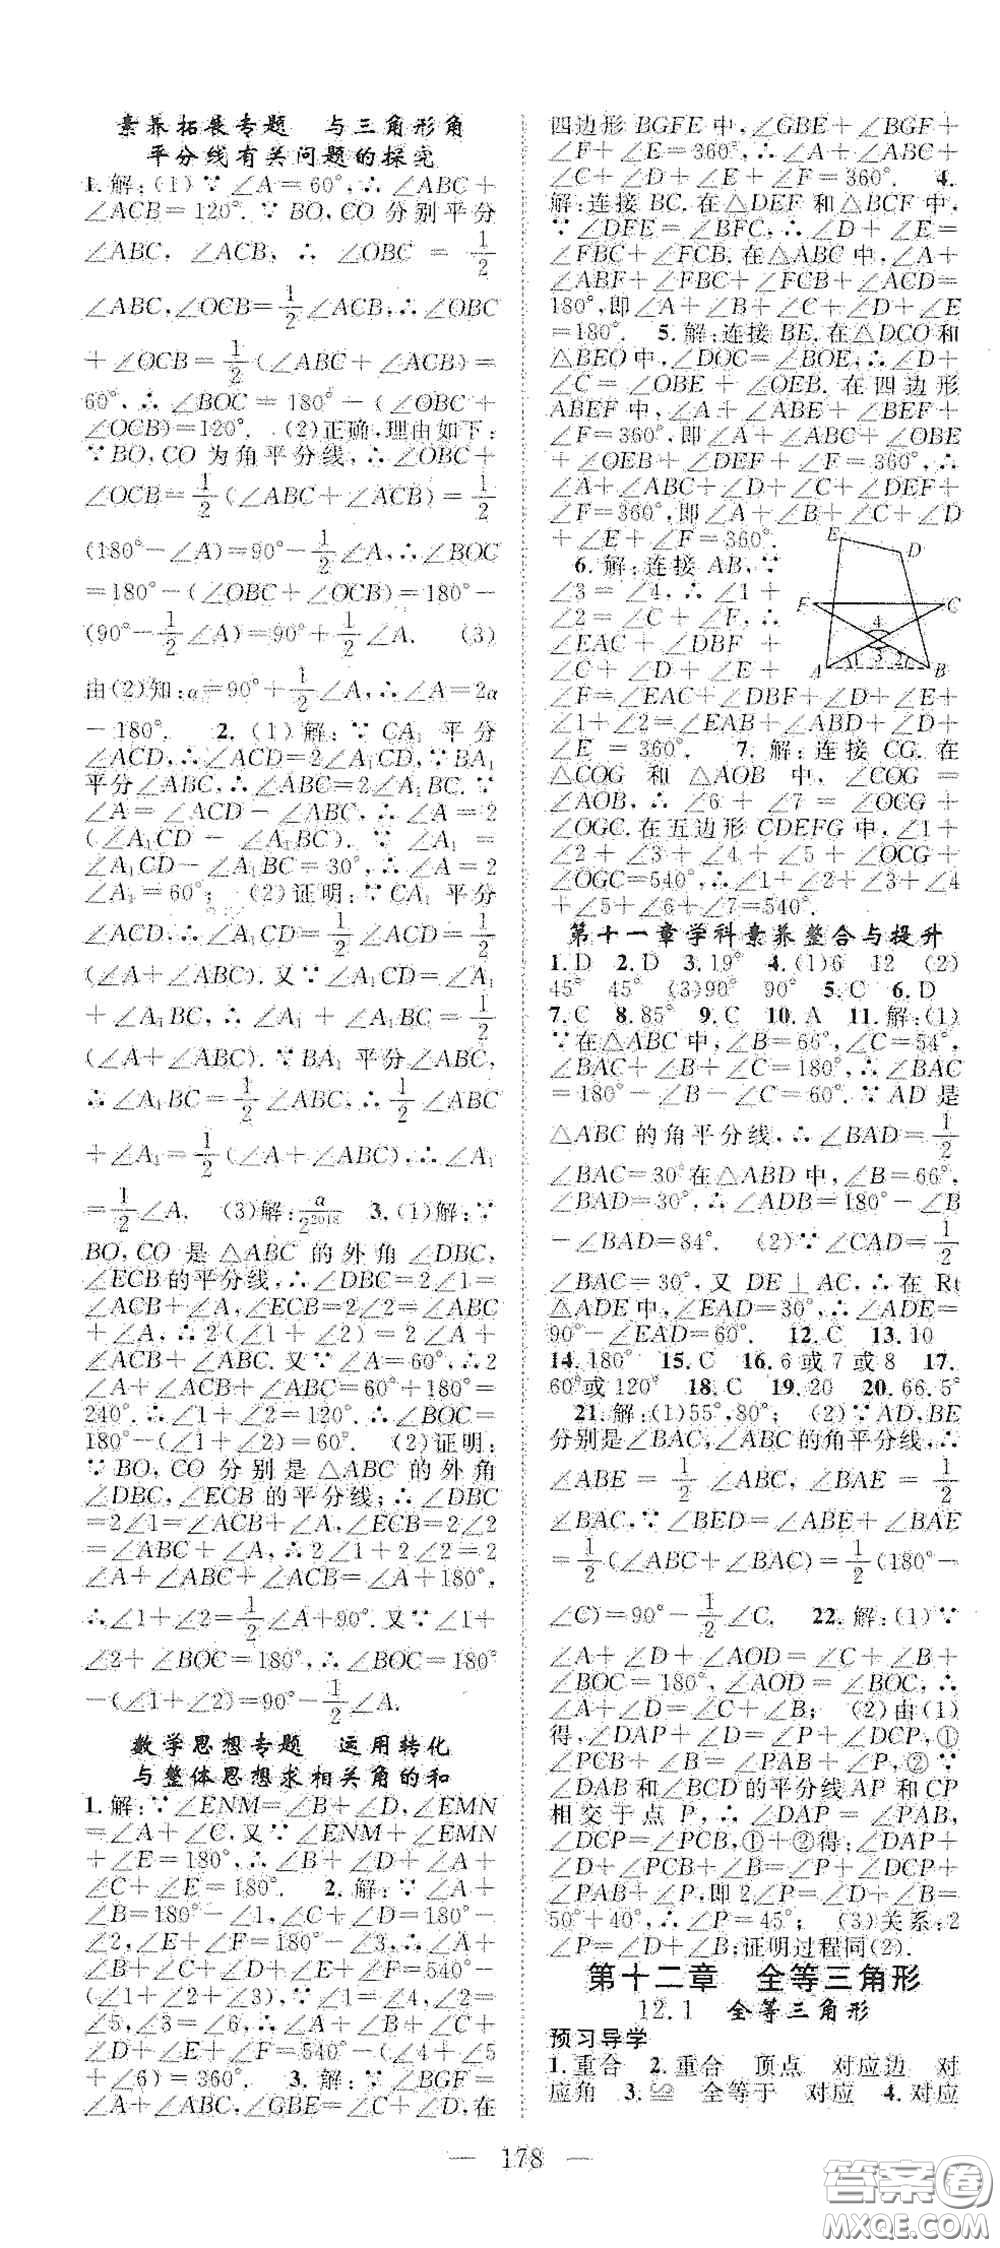 素养拓展专题 与三角形角
平分线有关问题的探究
1.解:(1)∵∠A=60°,∴∠ABC+
∠ACB=120°.∵BO,CO分别平分
∠ABC,∠ACB,∴∠OBC=1/2
∠ABC,∠OCB=1/2∠ACB,∴∠OBC
+∠OCB=1/2(∠ABC+∠ACB)=
60°,∴∠BOC=180°-(∠OBC+
∠OCB)=120°. (2)正确,理由如下:
∵BO,CO为角平分线,∴∠OBC+
∠OCB=1/2(∠ABC+∠ACB)=1/2
(180°-∠A)=90°-1/2∠A,∴∠BOC
=180°-(∠OBC+∠OCB)=180°-
(90°-1/2∠A)=90°+1/2∠A. (3)
由(2)知:α=90°+1/2∠A,∴∠A=2α
-180°. 2.(1)解:∵CA₁平分
∠ACD,∴∠ACD=2∠A₁CD,∵BA₁
平分∠ABC,∴∠ABC=2∠A₁BC.∵
∠A=∠ACD-∠ABC,∴∠A=2
(∠A₁CD-∠A₁BC).∵∠A₁=
∠A₁CD-∠A₁BC=30°,∴∠A=2
∠A₁=60°; (2)证明:∵CA₁平分
∠ACD,∴∠A₁CD=1/2∠ACD=1/2
(∠A+∠ABC).又∵∠A₁CD=∠A₁
+∠A₁BC,∴∠A₁+∠A₁BC=1/2
(∠A+∠ABC).∵BA₁平分∠ABC,
∴∠A₁BC=1/2∠ABC,∴1/2∠ABC
+∠A₁=1/2(∠A+∠ABC),∴∠A₁
=1/2∠A. (3)解:α/2²⁰¹⁸ 3.(1)解:∵
BO,CO是△ABC的外角∠DBC,
∠ECB的平分线,∴∠DBC=2∠1=
∠ACB+∠A,∠ECB=2∠2=∠ABC
+∠A,∴2(∠1+∠2)=2∠A+
∠ACB+∠ABC.又∵∠A=60°,∴2
∠A+∠ACB+∠ABC=60°+180°=
240°.∴∠1+∠2=120°.∴∠BOC=
180°-(∠1+∠2)=60°. (2)证明:
∵BO,CO分别是△ABC的外角
∠DBC,∠ECB的平分线;∴∠DBC
=2∠1=∠ACB+∠A,∠ECB=2∠2
=∠ABC+∠A,∴2∠1+2∠2=2
∠A+∠ABC+∠ACB=∠A+180°,
∴∠1+∠2=1/2∠A+90°.又∵∠1+
∠2+∠BOC=180°,∴∠BOC=180°
-(∠1+∠2)=90°-1/2∠A.
数学思想专题 运用转化
与整体思想求相关角的和
1.解:∵∠ENM=∠B+∠D,∠EMN
=∠A+∠C,又∵∠ENM+∠EMN
+∠E=180°,∴∠B+∠D+∠A+
∠C+∠E=180°. 2.解:∵∠A+
∠B=180°-∠1,∠C+∠D=180°-
∠2,∠E+∠F=180°-∠3,∴∠A+
∠B+∠C+∠D+∠E+∠F=540°-
(∠1+∠2+∠3),∵∠1=∠4,∠2=
∠5,∠3=∠6,∴∠A+∠B+∠C+
∠D+∠E+∠F=540°-(∠4+∠5+
∠6)=360°. 3.解:∵∠BGF=
∠A+∠ABC,∠GBE=∠C+∠D,在
四边形BGFE中,∠GBE+∠BGF+
∠F+∠E=360°,∴∠A+∠ABC+
∠C+∠D+∠E+∠F=360°. 4.
解:连接BC.在△DEF和△BCF中,
∵∠DFE=∠BFC,∴∠D+∠E=
∠FBC+∠FCB.在△ABC中,∠A+
∠ABF+∠FBC+∠FCB+∠ACD=
180°,即∠A+∠B+∠C+∠D+∠E
=180°. 5.解:连接BE.在△DCO和
△BEO中,∠DOC=∠BOE,∴∠D+
∠C=∠OBE+∠OEB.在四边形
ABEF中,∠A+∠ABE+∠BEF+
∠F=360°,即∠A+∠ABC+∠OBE
+∠OEB+∠DEF+∠F=360°,∴
∠A+∠ABC+∠D+∠C+∠DEF+
∠F=360°,即∠A+∠B+∠C+∠D
+∠E+∠F=360°.
6.解:连接AB,∵
∠3=∠4,∴∠1+
∠2=∠C+∠F,∴
∠EAC+∠DBF+
∠C+∠D+∠E+
∠F=∠EAC+∠DBF+∠D+∠E+
∠1+∠2=∠EAB+∠ABD+∠D+
∠E=360°. 7.解:连接CG.在
△COG和△AOB中,∠COG=
∠AOB,∴∠6+∠7=∠OCG+
∠OGC.在五边形CDEFG中,∠1+
∠2+∠3+∠4+∠5+∠OCG+
∠OGC=540°,∴∠1+∠2+∠3+∠4
+∠5+∠6+∠7=540°.
E
D
F
C
4
3
1
2
A
B
第十一章学科素养整合与提升
1.D 2.D 3.19° 4.(1)6 12 (2)
45° 45° (3)90° 90° 5.C 6.D
7.C 8.85° 9.C 10.A 11.解:(1)
∵在△ABC中,∠B=66°,∠C=54°,
∠BAC+∠B+∠C=180°,∴∠BAC
=180°-∠B-∠C=60°.∵AD是
△ABC的角平分线,∴∠BAD=1/2
∠BAC=30°在△ABD中,∠B=66°,
∠BAD=30°,∴∠ADB=180°-∠B
-∠BAD=84°. (2)∵∠CAD=1/2
∠BAC=30°,又DE⊥AC,∴在Rt
△ADE中,∠EAD=30°,∴∠ADE=
90°-∠EAD=60°. 12.C 13.10
14.180° 15.C 16.6或7或8 17.
60°或120° 18.C 19.20 20.66.5°
21.解:(1)55°,80°; (2)∵AD,BE
分别是∠BAC,∠ABC的角平分线,∴
∠ABE=1/2∠ABC,∠BAE=1/2
∠BAC,∵∠BED=∠ABE+∠BAE
=1/2(∠ABC+∠BAC)=1/2(180°-
∠C)=90°-1/2∠C. 22.解:(1)∵
∠A+∠D+∠AOD=∠C+∠B+
∠BOC=180°,∠AOD=∠BOC,∴
∠A+∠D=∠C+∠B; (2)由(1)
得,∠DAP+∠D=∠P+∠DCP,①
∠PCB+∠B=∠PAB+∠P,②∵
∠DAB和∠BCD的平分线AP和CP
相交于点P,∴∠DAP=∠PAB,
∠DCP=∠PCB,①+②得:∠DAP+
∠D+∠PCB+∠B=∠P+∠DCP+
∠PAB+∠P,即2∠P=∠D+∠B=
50°+40°,∴∠P=45°; (3)关系:2
∠P=∠D+∠B;证明过程同(2).
第十二章 全等三角形
12.1 全等三角形
预习导学
1.重合 2.重合 顶点 对应边 对
应角 3.≌ 全等于 对应 4.对应
— 178 —
答案圈
MXQE.COM